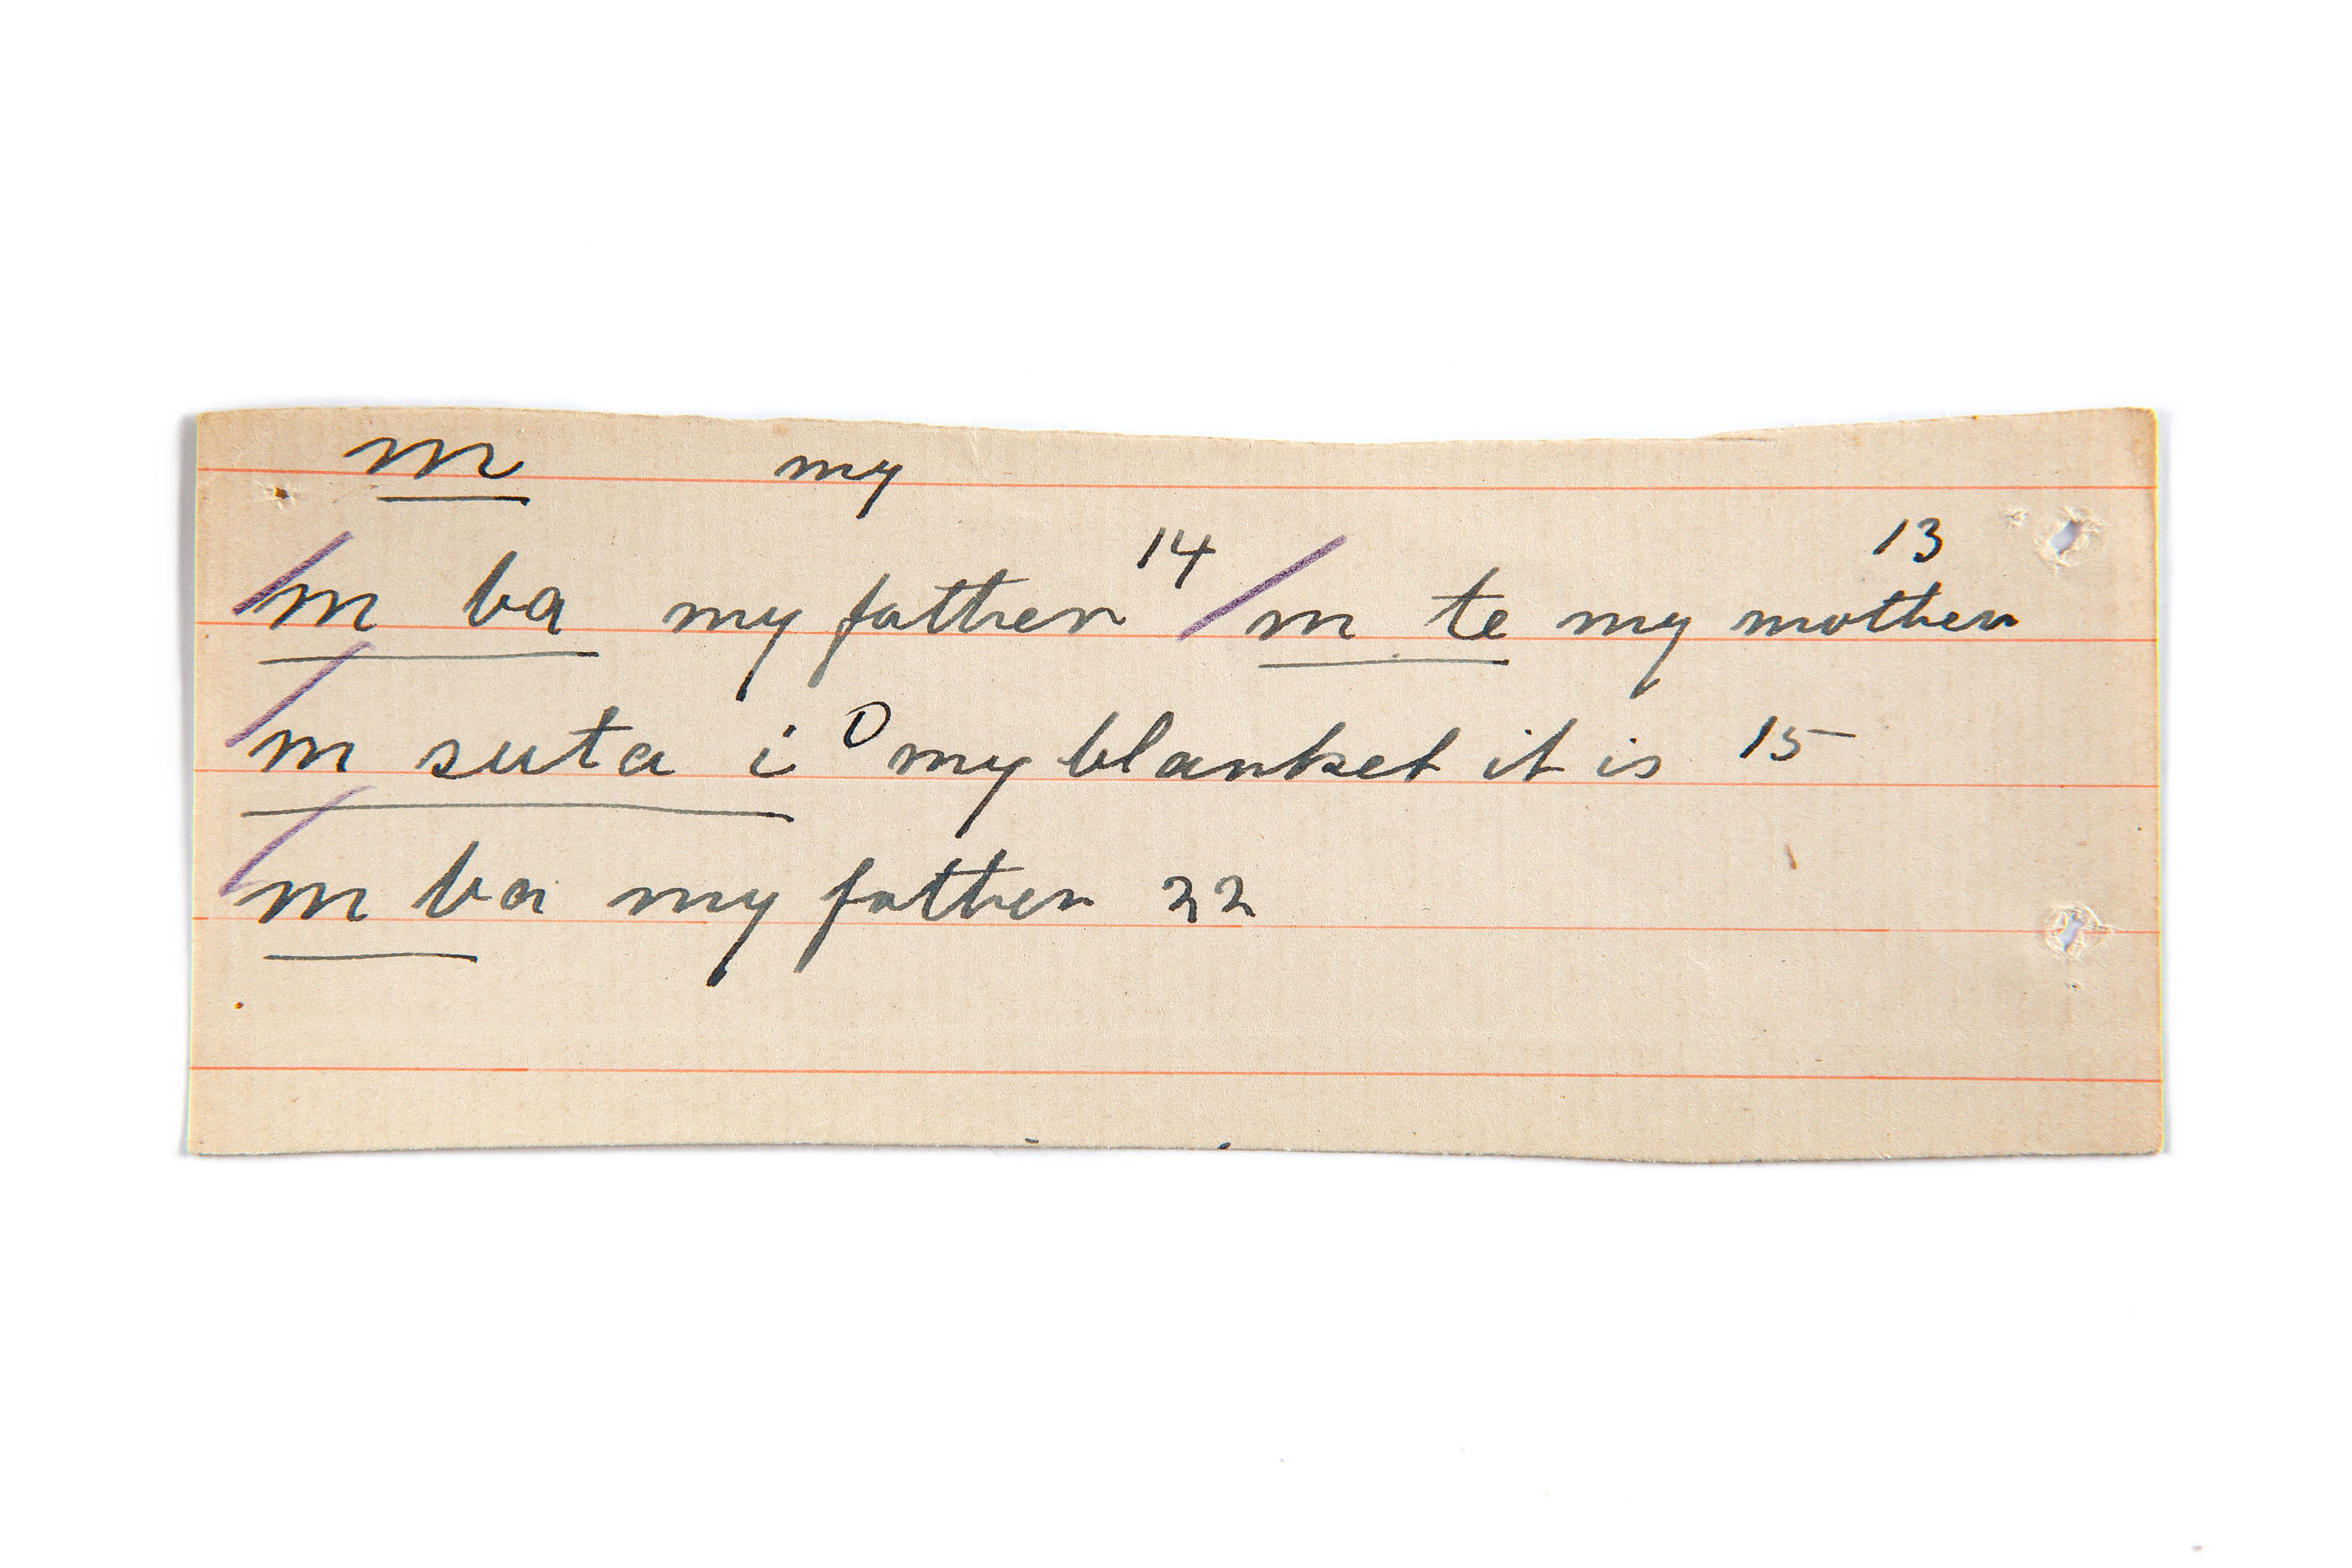 m my
m ba my father 14 m te my mother 13
m suta i O my blanket it is 15
m ba my father 22